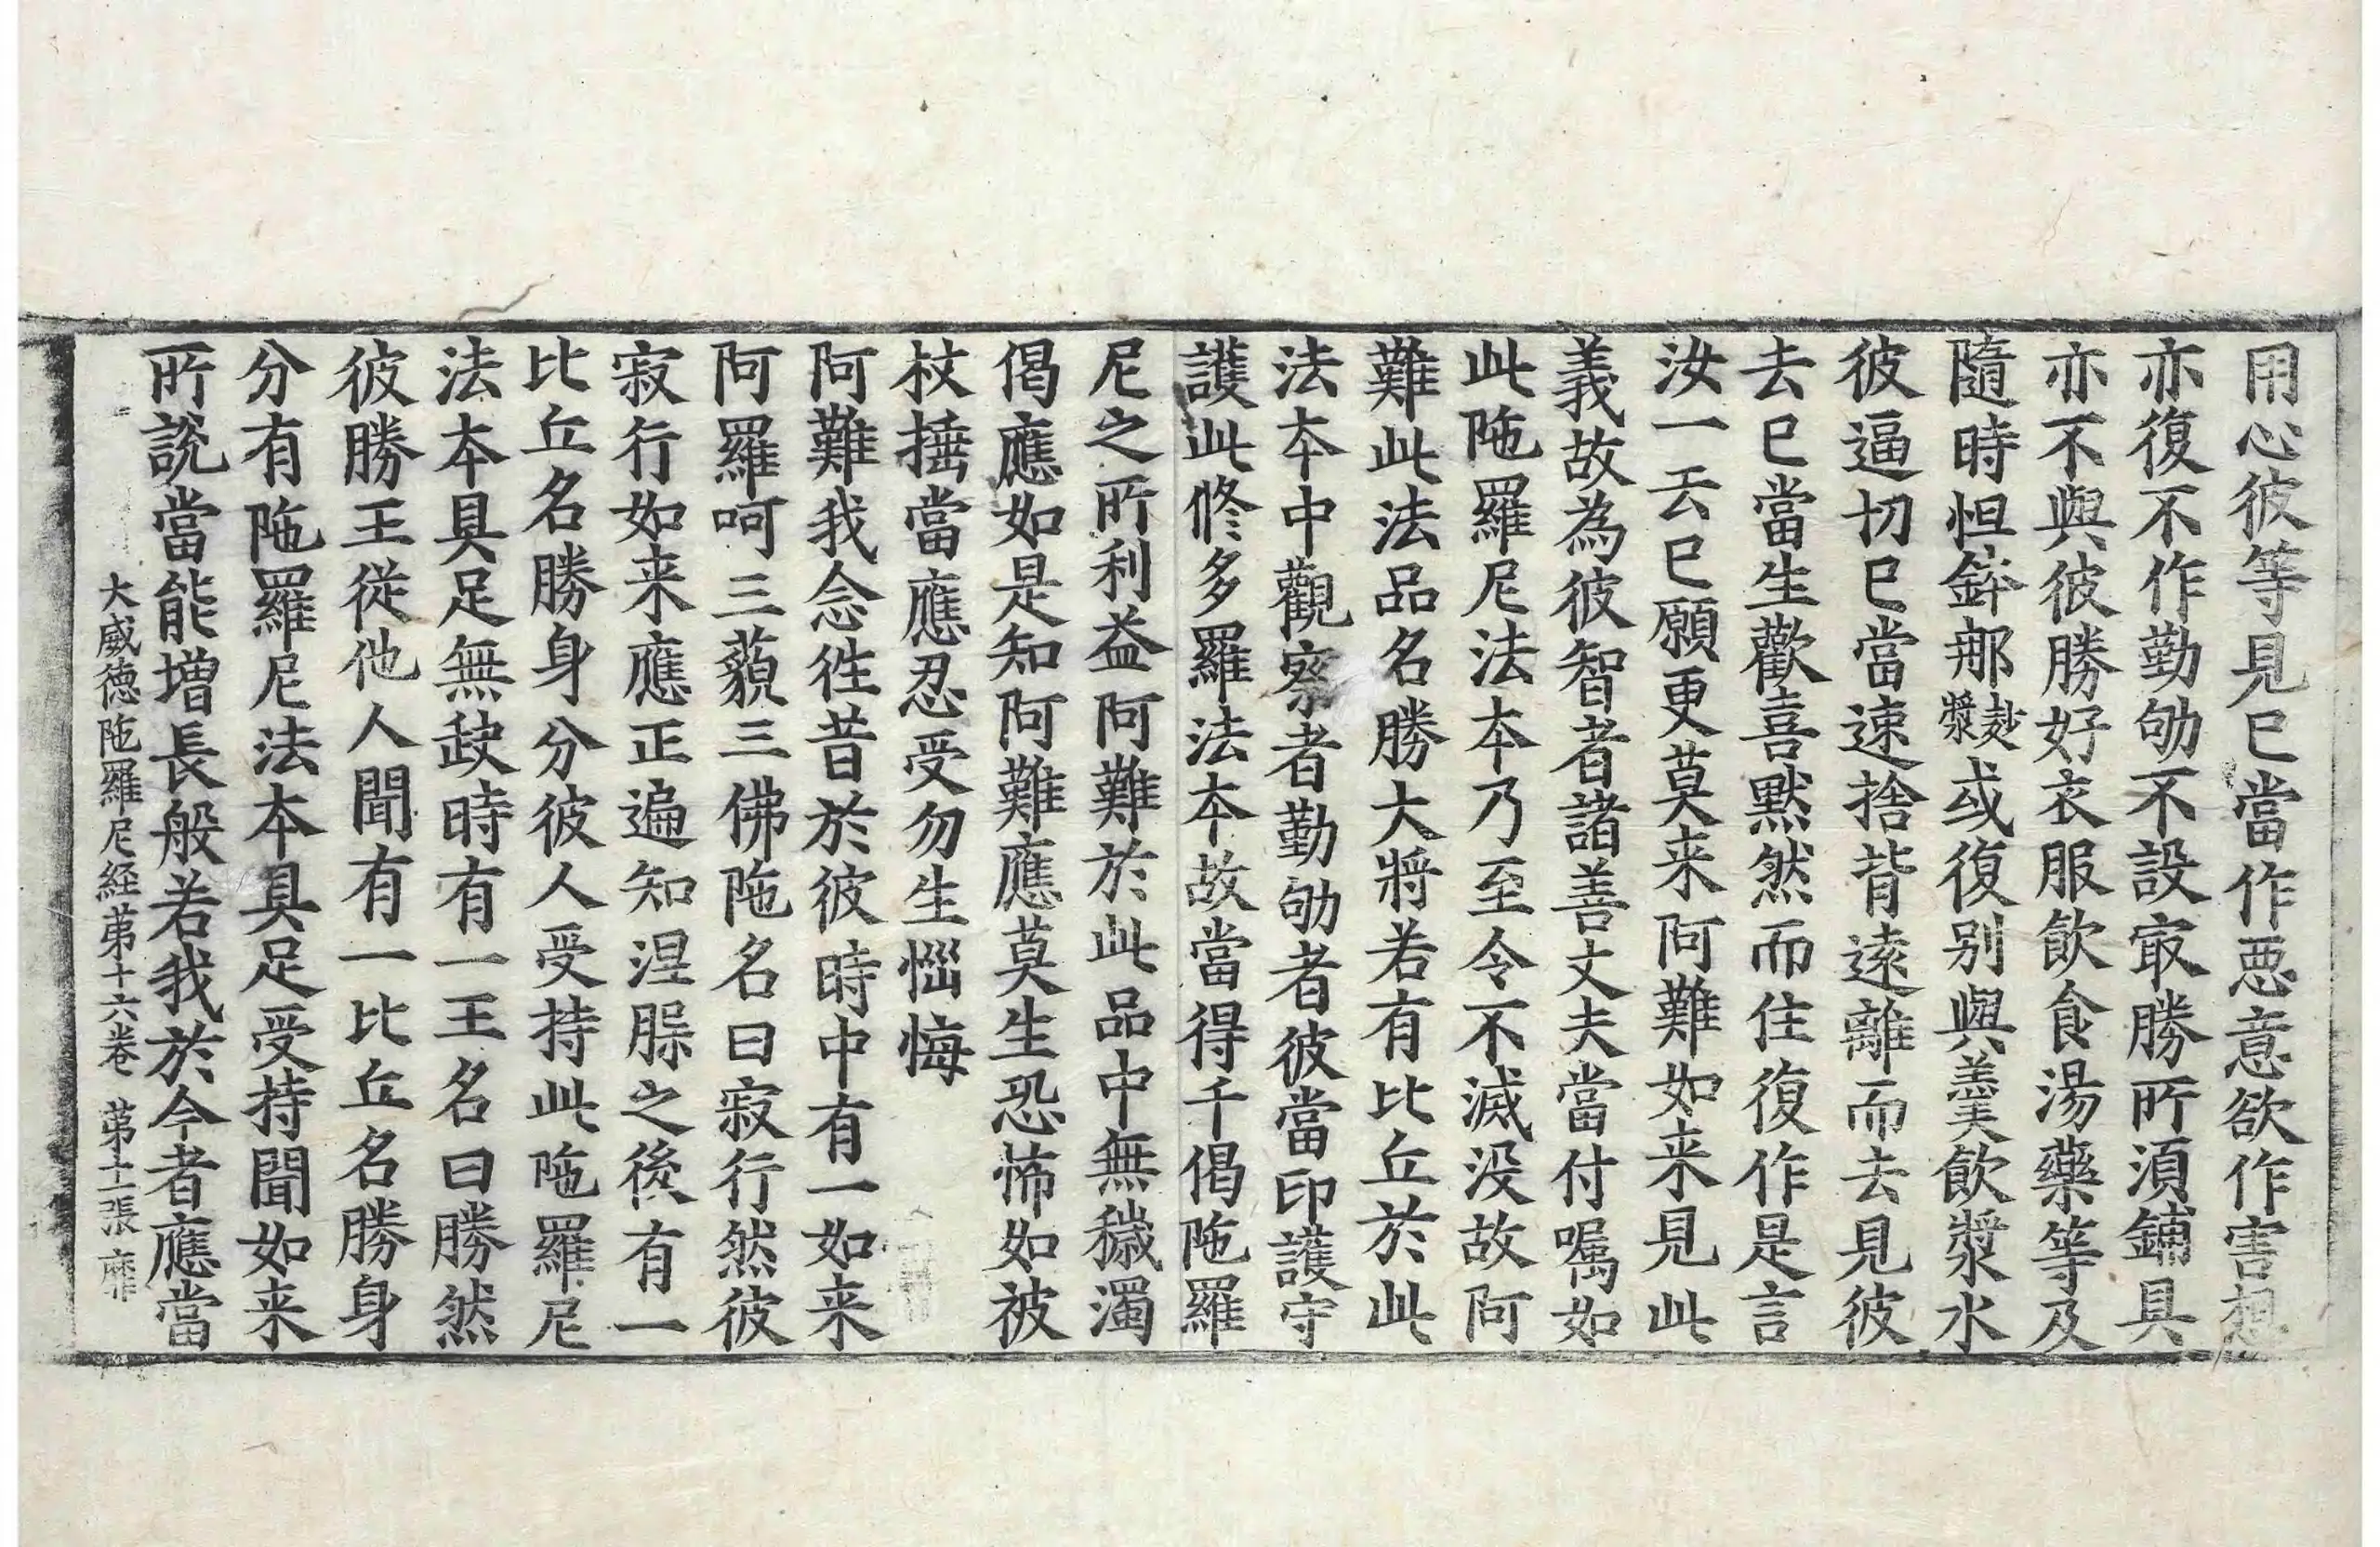 用心彼等見已當作惡意欲作害想
亦復不作勤劬不設㝡勝所須鋪具
亦不與彼勝好衣服飲食湯藥等及
隨時怛鉢那麨漿或復別與羹飲漿水
彼逼切已當速捨背遠離而去見彼
去已當生歡喜默然而住復作是言
汝一去已願更莫来阿難如来見此
義故為彼智者諸善丈夫當付囑如
此陁羅尼法本乃至令不滅没故阿
難此法品名勝大將若有比丘於此
法本中觀察者勤劬者彼當印護守
護此修多羅法本故當得千偈陁羅
尼之所利益阿難於此品中無穢濁
偈應如是知阿難應莫生恐怖如被
杖捶當應忍受勿生惱悔
阿難我念往昔於彼時中有一如来
阿羅呵三藐三佛陁名曰寂行然彼
寂行如来應正遍知涅槃之後有一
比丘名勝身分彼人受持此陁羅尼
法本具足無缺時有一王名曰勝然
彼勝王從他人聞有一比丘名勝身
分有陁羅尼法本具足受持聞如来
所說當能增長般若我於今者應當
大威德陁羅尼経第十六卷 第十二張 靡